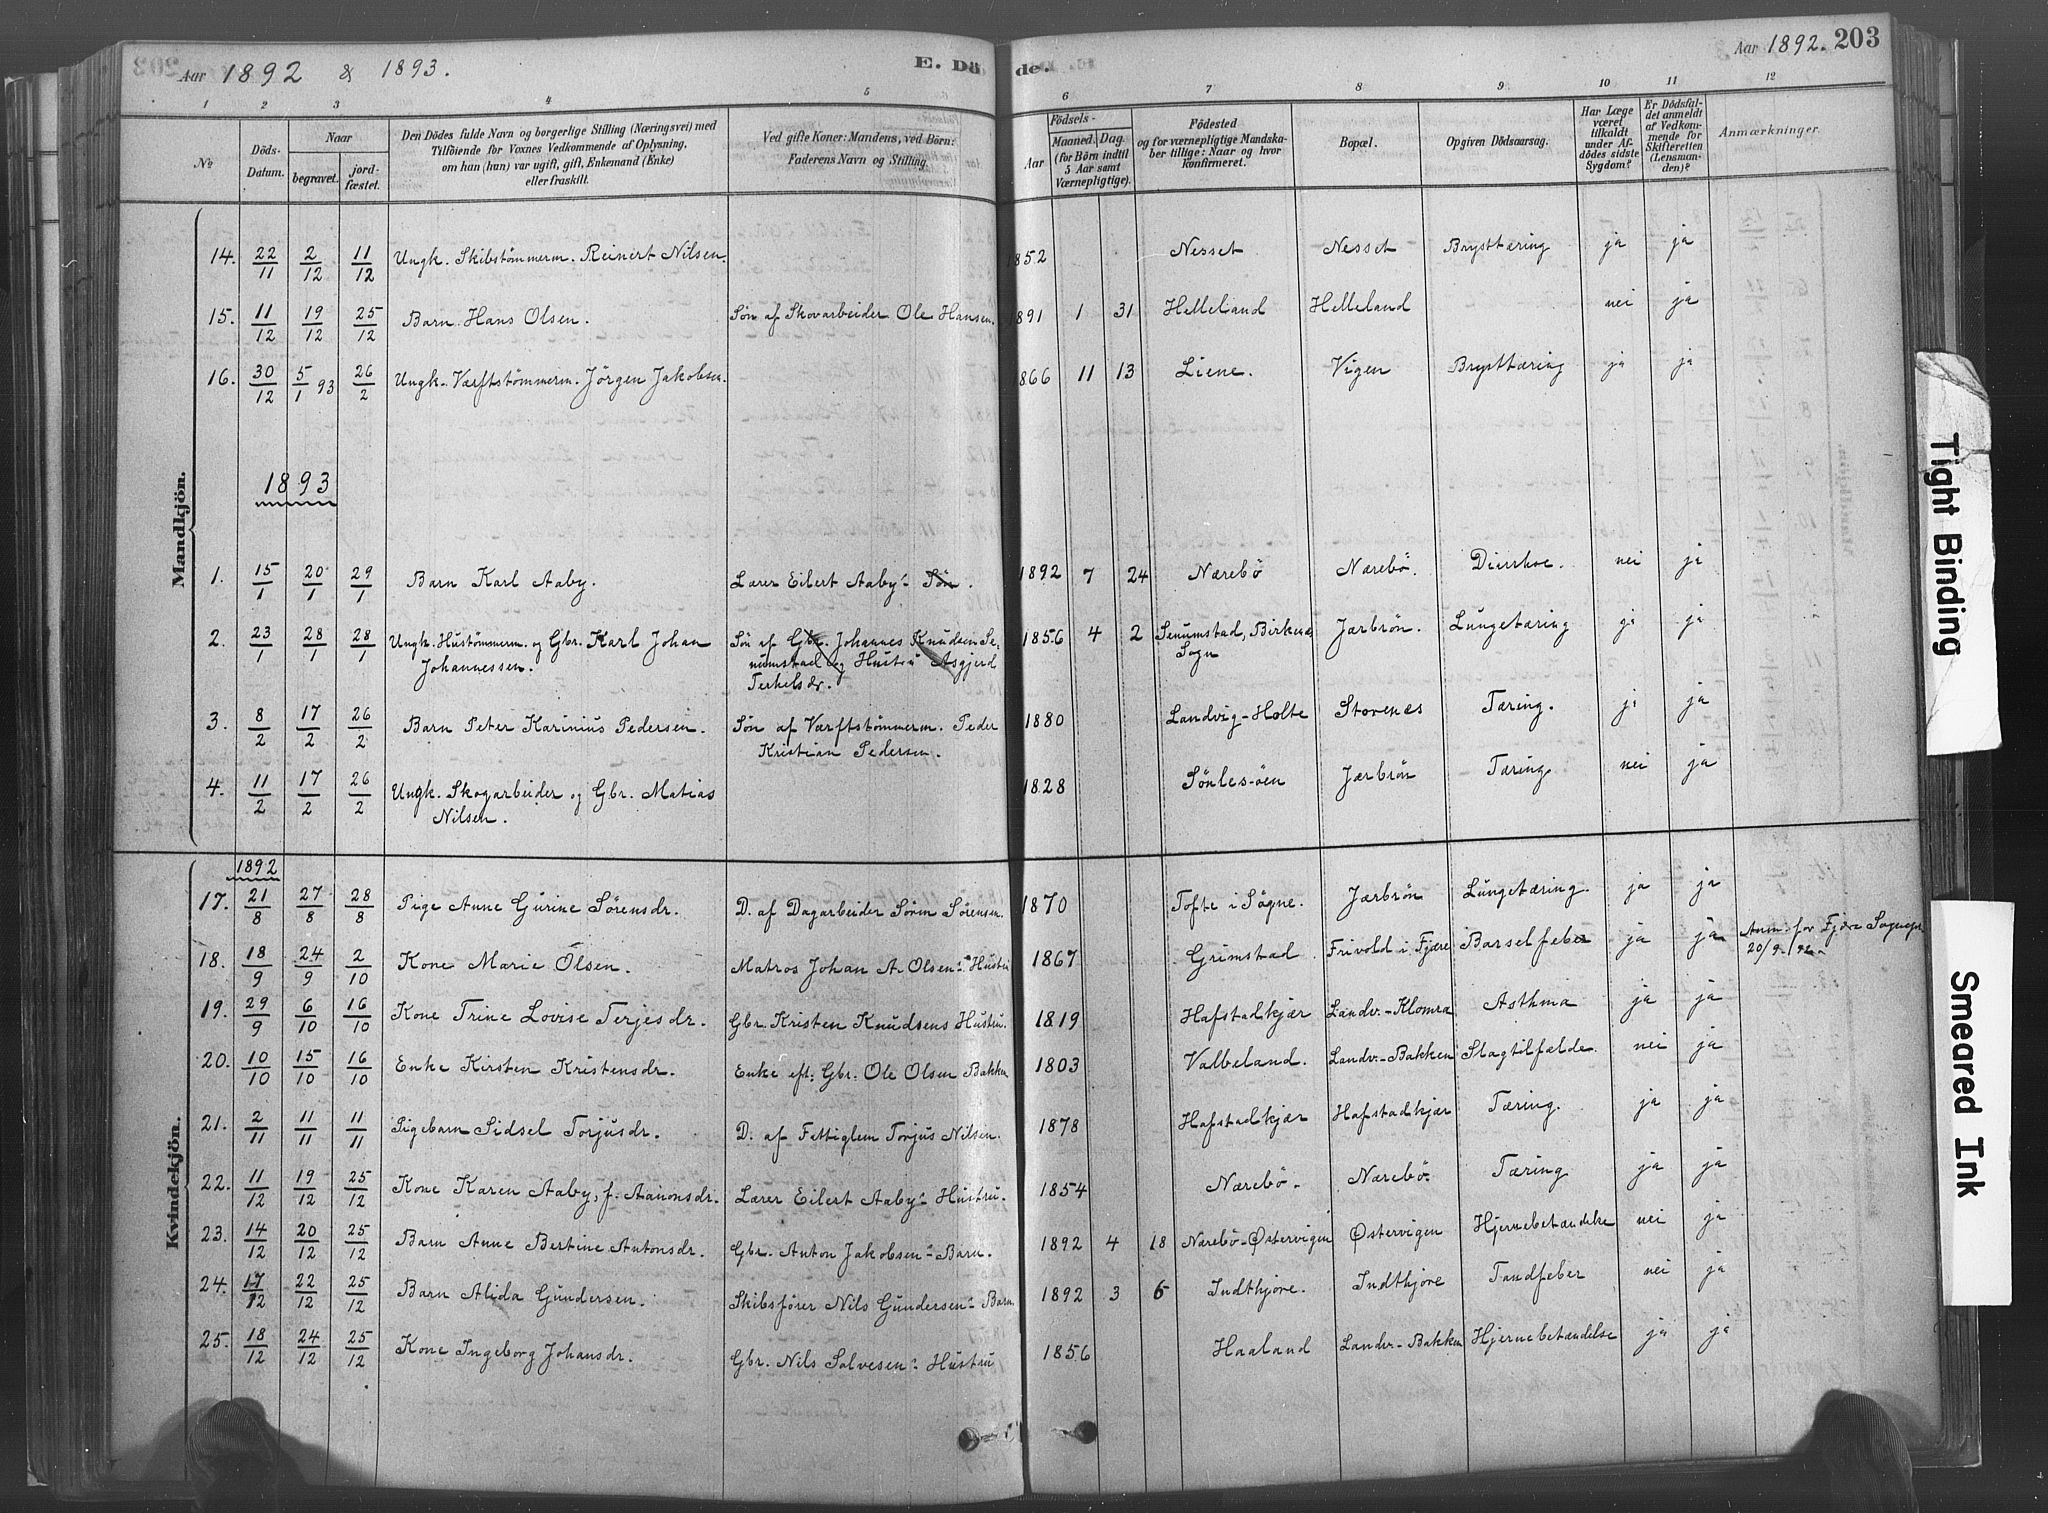 Aar 1892 & 1893. E. Dö de. Aar 1892. 203
1 2 3 4 5 6 7 8 9 10 11 12
No Döds-Datum. Naar begravet. jord-fæstet. Den Dödes fulde Navn og borgerlige Stilling (Næringsvei) med Tilföiende for Voxnes Vedkommende af Oplysning, om han (hun) var ugift, gift, Enkemand (Enke) eller fraskilt. Ved gifte Koner: Mandens, ved Börn: Faderens Navn og Stilling. Aar Födsels- Maaned. Dag. (for Börn indtil 5 Aar samt Værnepligtige). Födested og for værnepligtige Mandskaber tillige: Naar og hvor konfirmeret. Bopæl. Opgiven Dödsaarsag. Har Læge været tilkaldt under Afdödes sidste Sygdom? Er Dödsfaldet anmeldt af Vedkommende for Skifteretten (Lensmanden)? Anmærkninger.
Mandkjön.
14. 22/11 2/12 11/12 Ungk. Skibstømmerm. Reinert Nilsen. 1852 Nesset Nesset Brysttæring ja ja
15. 11/12 19/12 25/12 Barn Hans Olsen. Søn af Skovarbeider Ole Hansen. 1891 1 31 Helleland Helleland nei ja
16. 30/12 5/1 93 26/2 Ungk. Værftstømmerm. Jörgen Jakobsen. 1866 11 13 Liene. Vigen Brysttæring ja ja
1893
1. 15/1 20/1 29/1 Barn Karl Aaby. Lærer Eilert Aaby's Søn. 1892 7 24 Nærebö Nærebö. Diarrhoe. nei ja
2. 23/1 28/1 28/1 Ungk. Hustømmerm. og Gbr. Karl Johan Søn af Gbr. Johannes Knudsen Se- 1856 4 2 Senumstad, Birkenæs Jærbrön. Lungetæring ja ja
Johannessen. numstad og Hustru Asgjerd Sogn
Terkelsdr.
3. 8/2 17/2 26/2 Barn Peter Karinius Pedersen. Søn af Værftstømmerm. Peder 1880 Landvig-Holte Storenæs Tæring. ja ja
Kristian Pedersen.
4. 11/2 17/2 26/2 Ungk. Skogarbeider og Gbr. Matias 1828 Sönlesöen Jærbrön Tæring. nei ja
Nilsen.
Kvindekjön.
1892
17. 21/8 27/8 28/8 Pige Anne Gurine Sørensdr. D. af Dagarbeider Søren Sørensen. 1870 Tofte i Søgne. Jærbrön Lungetæring. ja ja
18. 18/9 24/9 2/10 Kone Marie Olsen. Matros Johan A. Olsen's Hustru 1867 Grimstad Frivold i Fjære Barselfeber ja ja Anm. for Fjære Sognepr. 20/9 92.
19. 29/9 6/10 16/10 Kone Trine Lovise Terjesdr. Gbr. Kristen Knudsens Hustru. 1819 Hafstadkjær Landv.-Klomra Asthma ja ja
20. 10/10 15/10 16/10 Enke Kirsten Kristensdr. Enke eft. Gbr. Ole Olsen Bakken 1803 Valbeland. Landv.-Bakken Slagtilfælde. nei ja
21. 2/11 11/11 11/11 Pigebarn Sidsel Torjusdr. D. af Fattiglem Torjus Nilsen. 1878 Hafstadkjær Hafstadkjær Tæring. ja ja
22. 11/12 19/12 25/12 Kone Karen Aaby, f. Aanonsdr. Lærer Eilert Aaby's Hustru. 1854 Nærebö. Nærebö. Tæring ja ja
23. 14/12 20/12 25/12 Barn Anne Bertine Antonsdr. Gbr. Anton Jakobsen's Barn. 1892 4 18 Nærebö-Østervigen Østervigen Hjernebetændelse nei ja
24. 17/12 22/12 25/12 Barn Alida Gundersen. Skibsfører Nils Gundersen's Barn. 1892 3 6 Indthjöre. Indthjöre Tandfeber nei ja
25. 18/12 24/12 25/12 Kone Ingeborg Johansdr. Gbr. Nils Salvesen's Hustru 1856 Haaland Landv.-Bakken Hjernebetændelse ja ja
Tight Binding
Smeared Ink